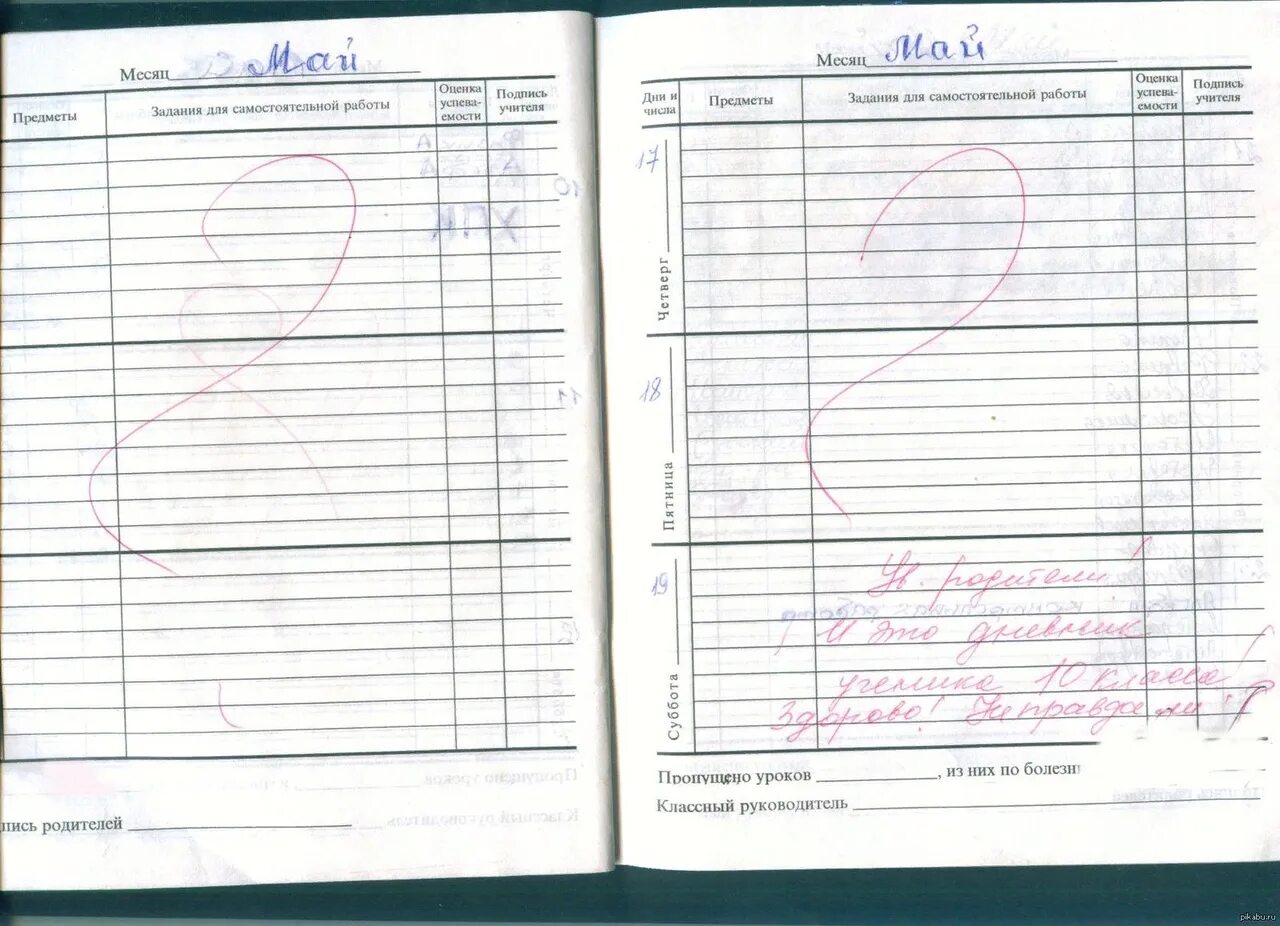 Месяц Май
Предметы
Задания для самостоятельной работы
Оценка
успева-
емости
Подпись
учителя
пись родителей
Месяц Май
Дни и
числа
Предметы
Задания для самостоятельной работы
Оценка
успева-
емости
Подпись
учителя
17
Четверг
18
Пятница
19
Суббота
Ув. родители!
И это дневник
ученика 10 класса!
Здорово! Не правда ли?
Пропущено уроков , из них по болезн
Классный руководитель
pikabu.ru